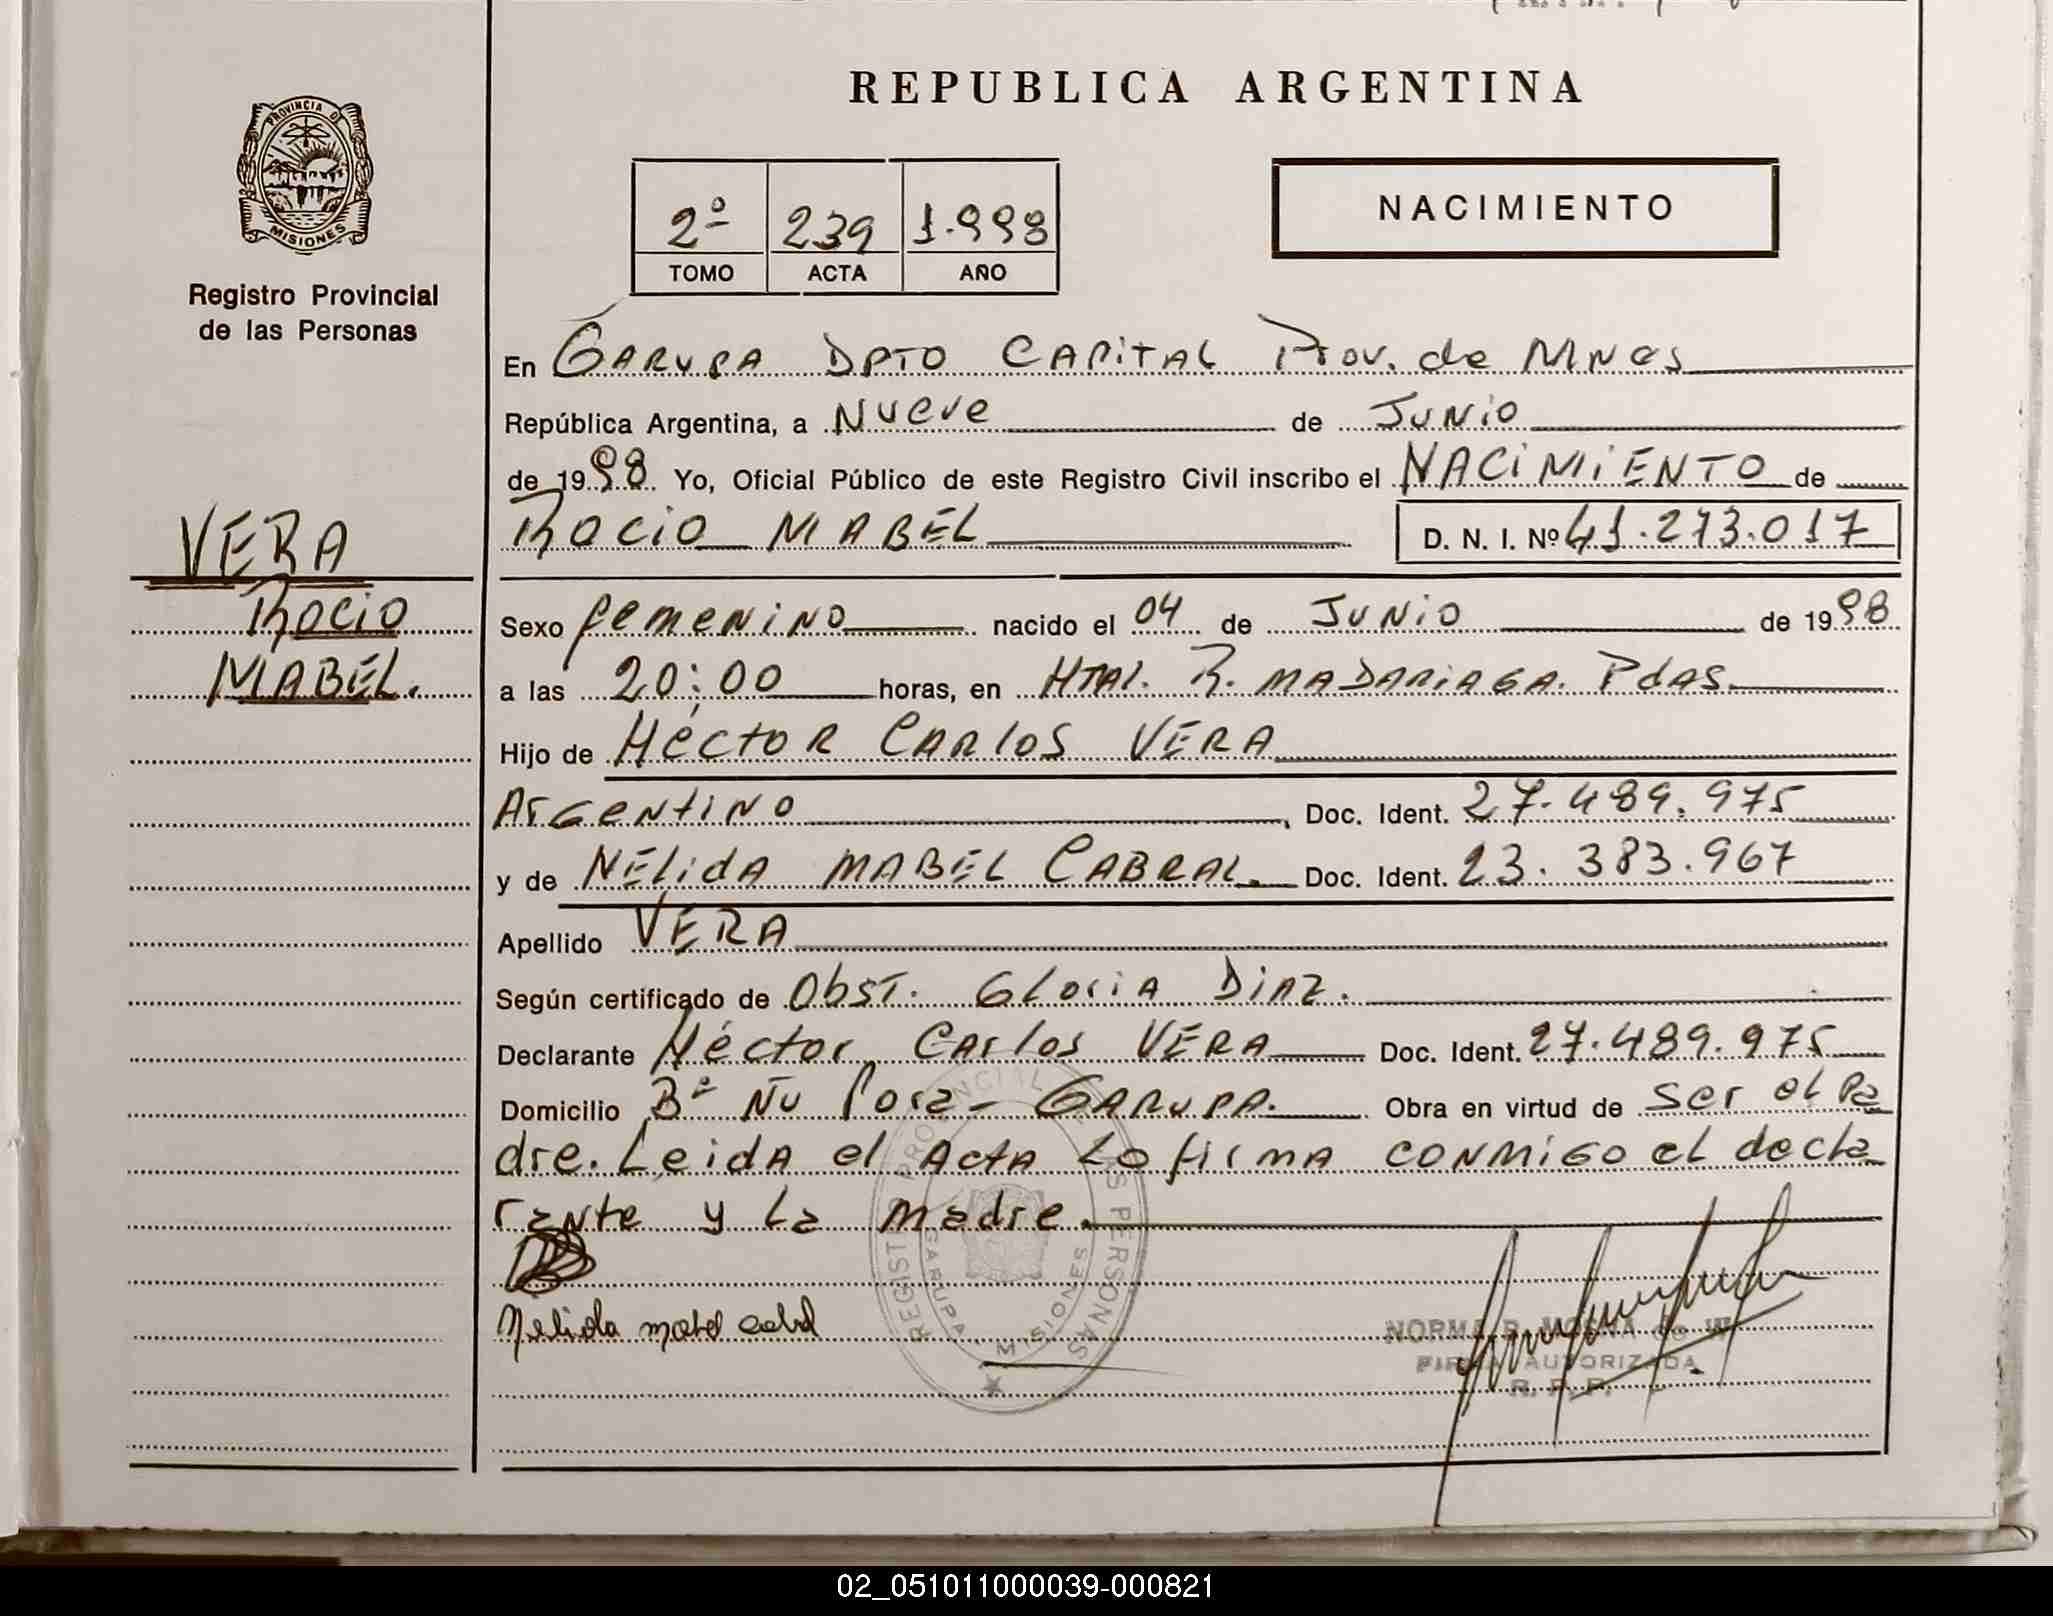 REPUBLICA ARGENTINA
PROVINCIA DE
MISIONES
Registro Provincial
de las Personas
2º 239 1.998
TOMO ACTA AÑO
NACIMIENTO
En GARUPA DPTO CAPITAL Prov. de MNES
República Argentina, a Nueve de JUNIO
de 1998 Yo, Oficial Público de este Registro Civil inscribo el NACIMIENTO de
ROCIO MABEL D. N. I. Nº 41.273.017
VERA
ROCIO
MABEL.
Sexo femenino nacido el 04 de JUNIO de 1998
a las 20:00 horas, en HTAL. R. MADARIAGA. PdAS.
Hijo de HéCTOR CARLOS VERA
ArGeNtiNO, Doc. Ident. 27.489.975
y de NÉLIDA MABEL CABRAL. Doc. Ident. 23.383.967
Apellido VERA
Según certificado de ObST. GLOriA DIAZ.
Declarante Héctor Carlos VERA Doc. Ident. 27.489.975
Domicilio Bº ÑU Porá - GARUPA. Obra en virtud de ser el Pa
dre. Leida el Acta Lo firma conmigo el decla
rante y la madre.
Nelida mabel cabral
REGISTRO PROVINCIAL DE LAS PERSONAS
GARUPA MISIONES
NORMA R. MOSNA de
FIRMA AUTORIZADA
R. P. P.
02_051011000039-000821